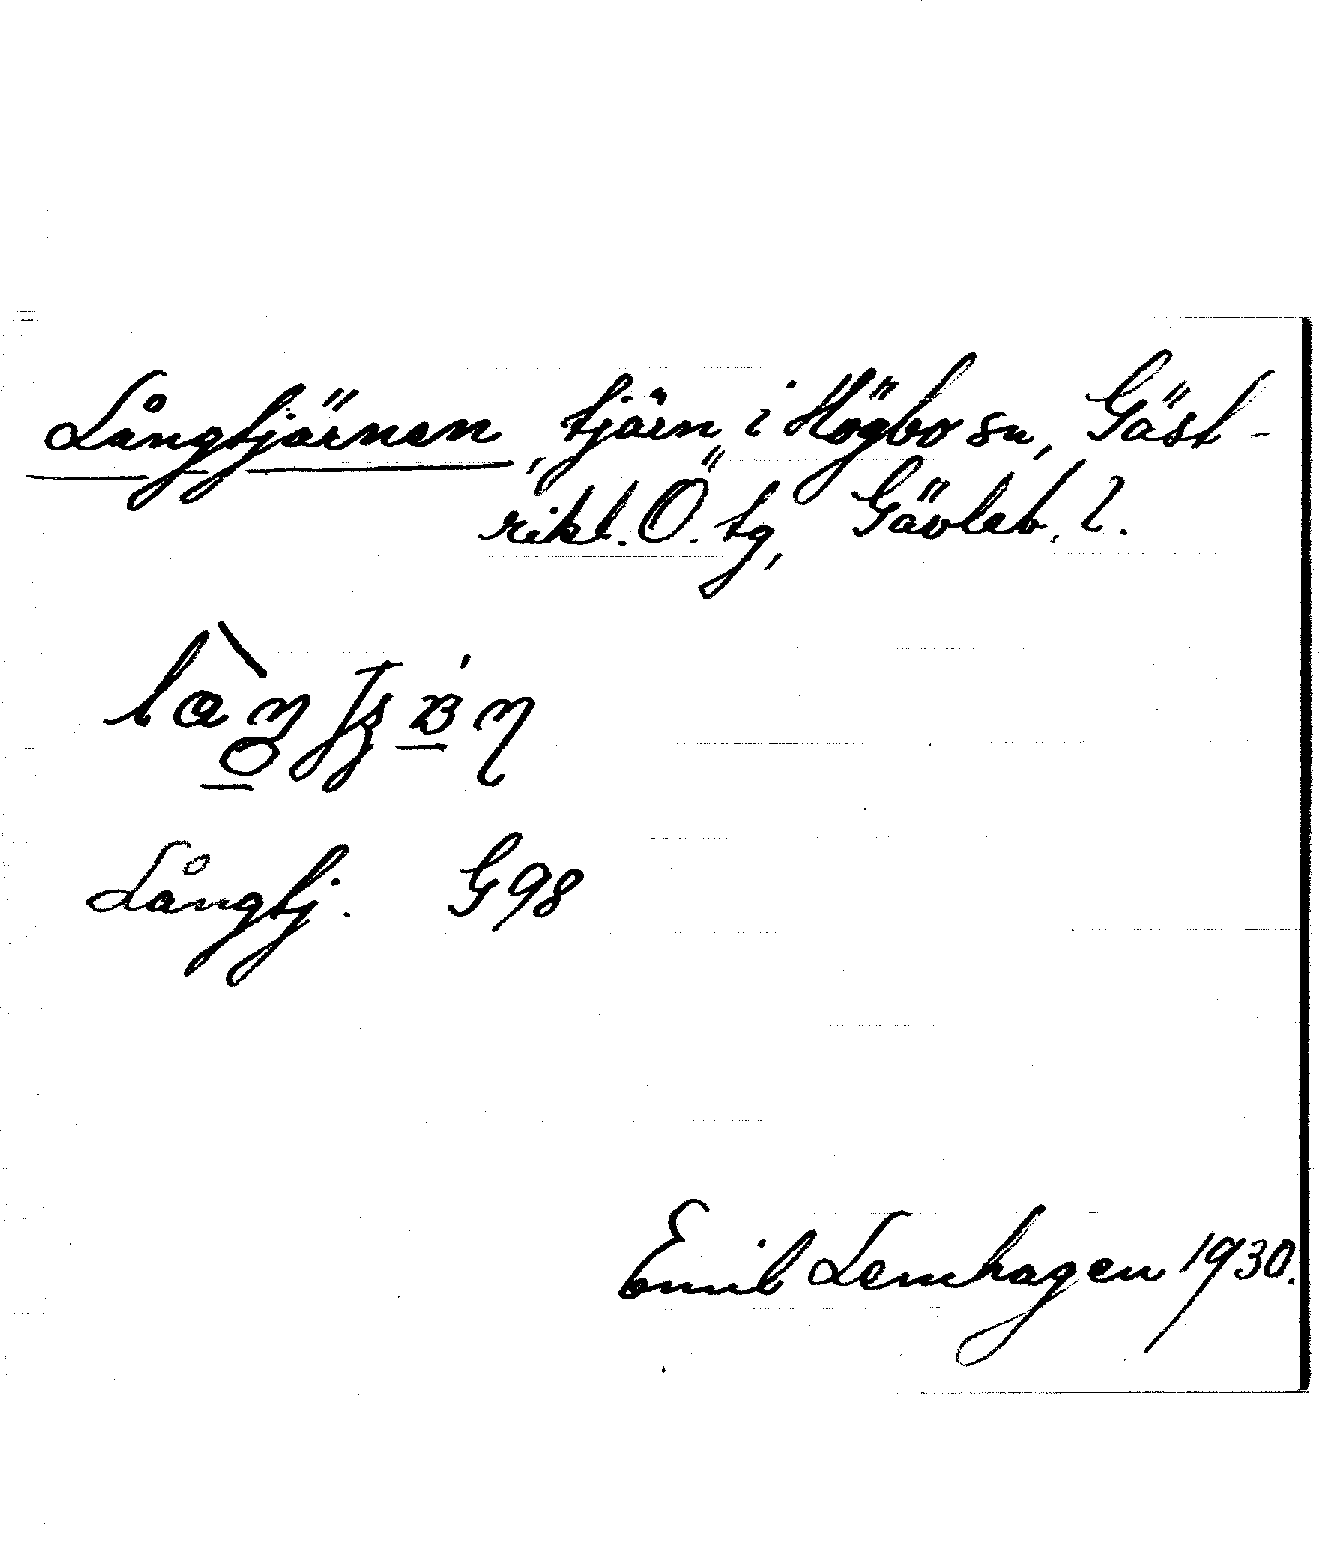 Långtjärnen, tjärn i Högbo sn, Gäst-
rikl. Ö. tg, Gävleb. l.
Långtj. G98
Emil Lemhagen 1930.